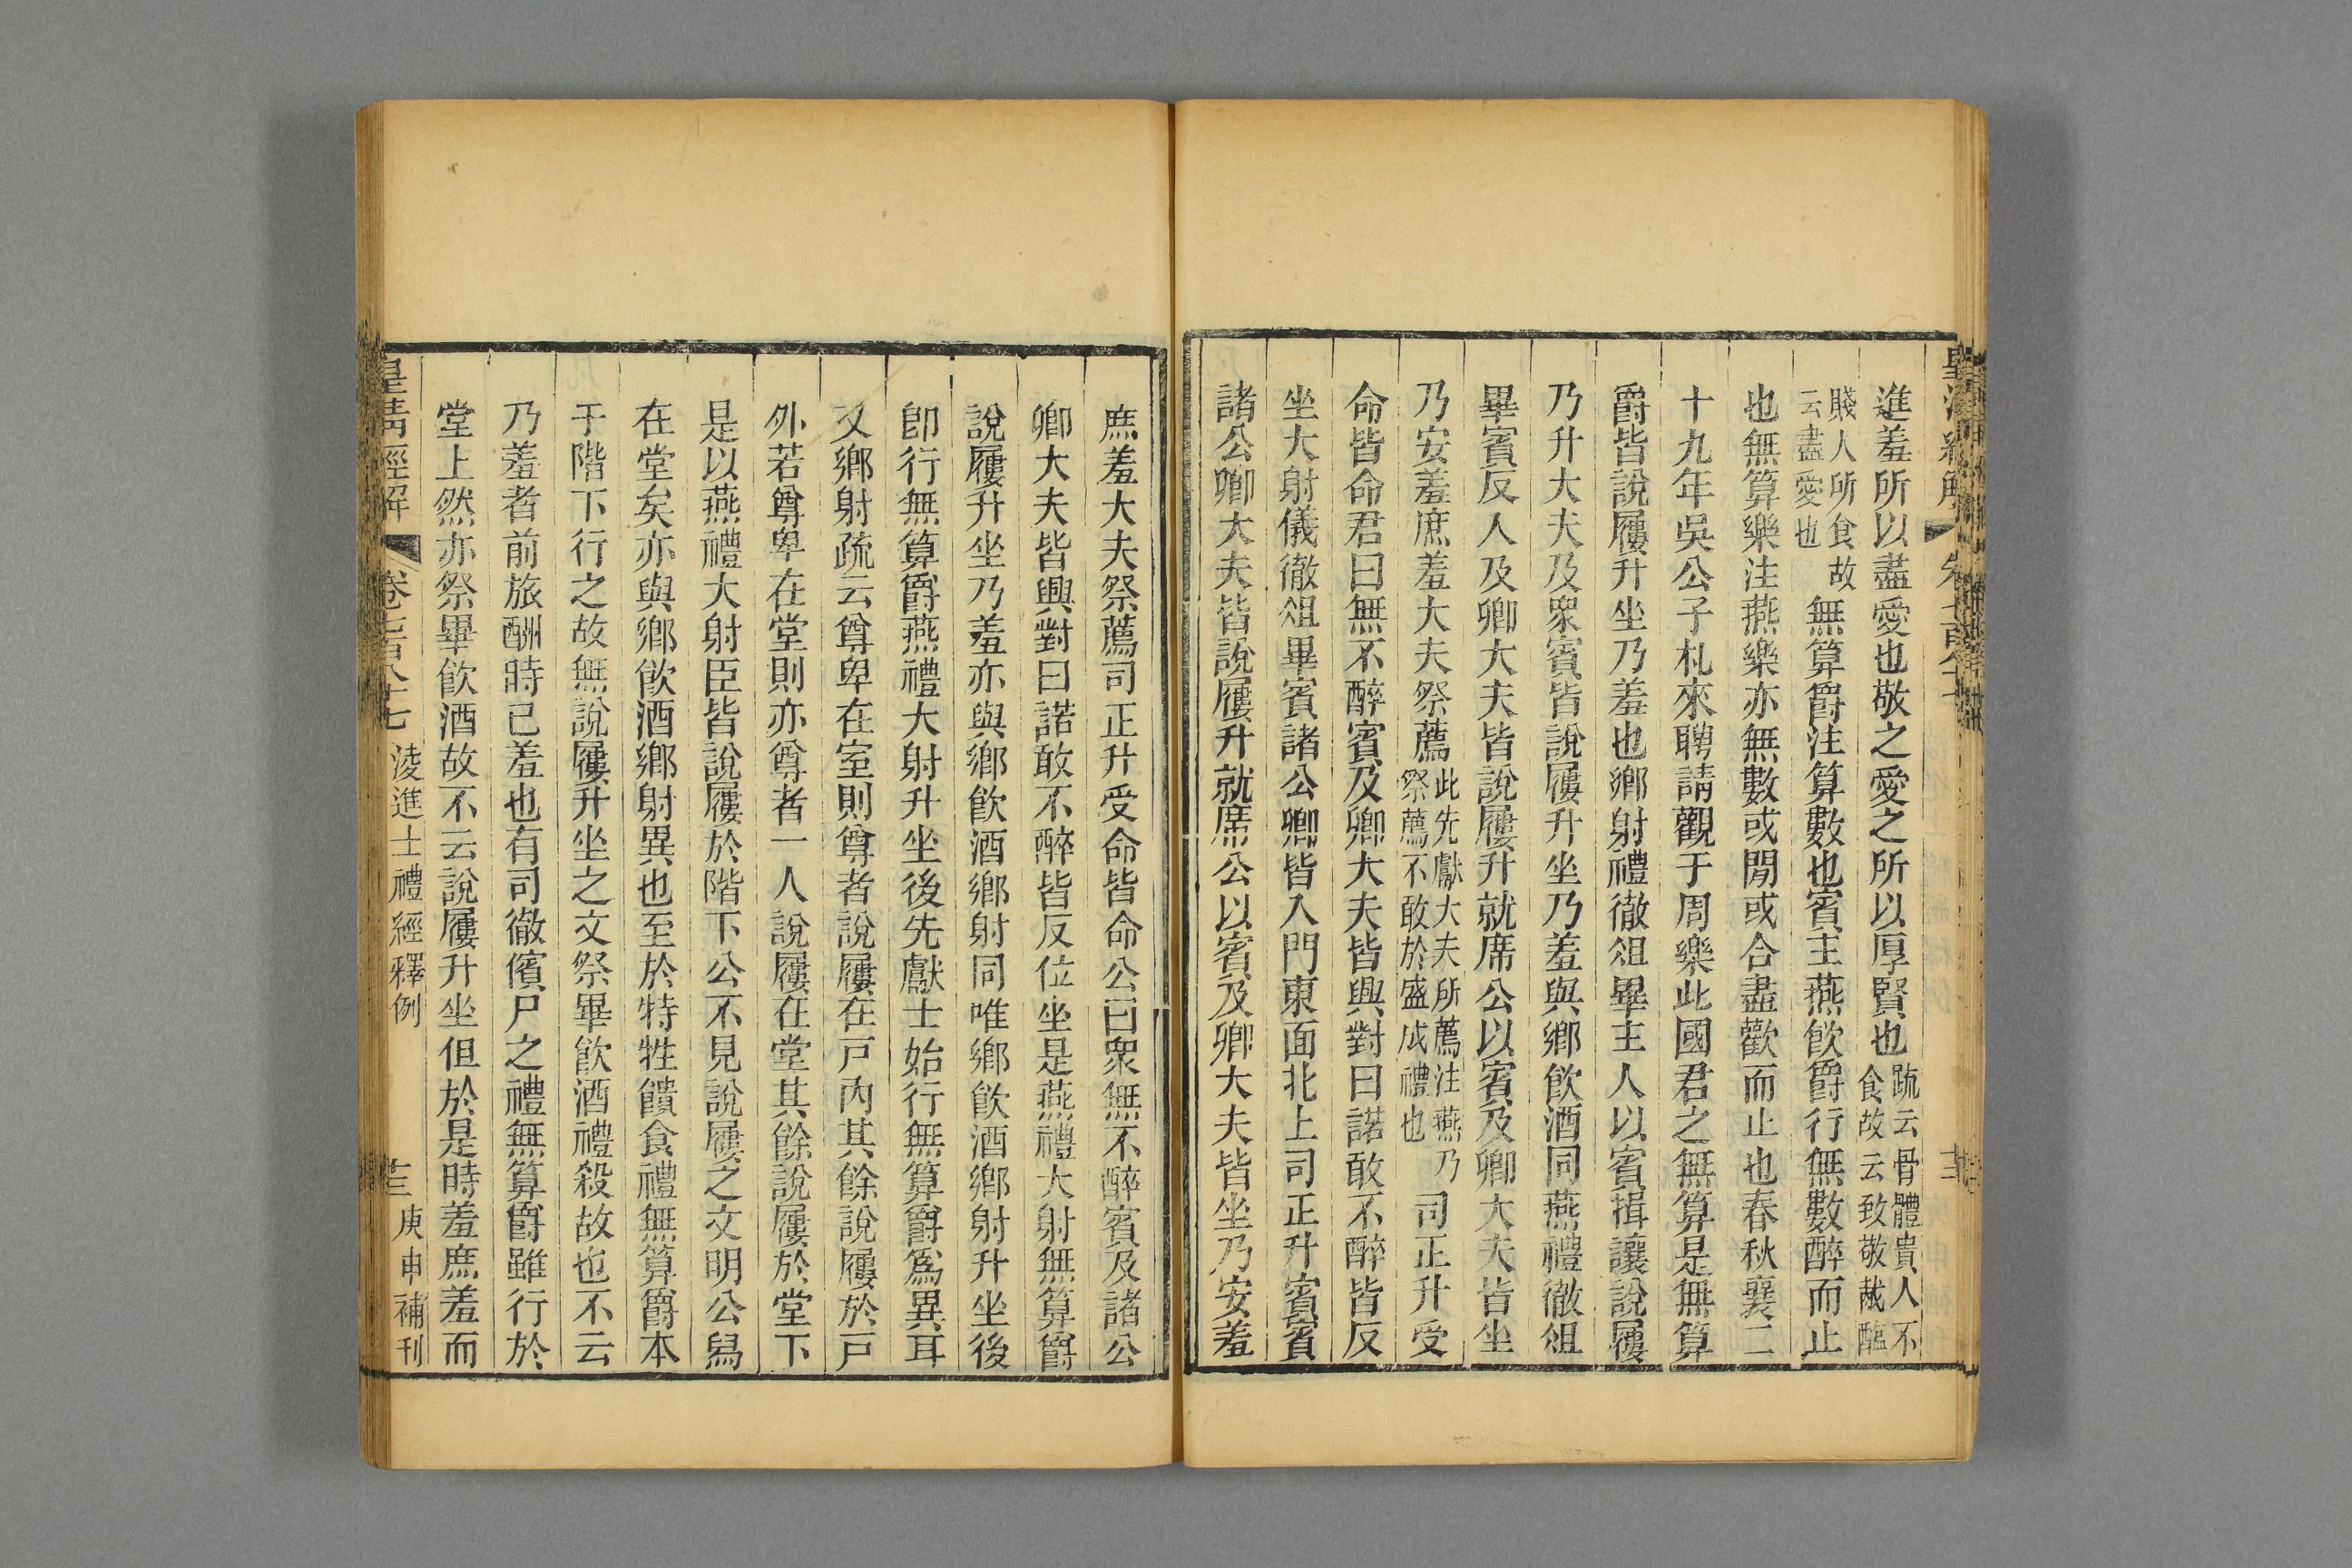 進羞所以盡愛也敬之愛之所以厚賢也疏云骨體貴人不食故云致敬胾醢
賤人所食故云盡愛也無算爵注算數也賓主燕飲爵行無數醉而止
也無算樂注燕樂亦無數或閒或合盡歡而止也春秋襄二
十九年吳公子札來聘請觀于周樂此國君之無算是無算
爵皆說屨升坐乃羞也鄉射禮徹俎畢主人以賓揖讓說屨
乃升大夫及眾賓皆說屨升坐乃羞與鄉飲酒同燕禮徹俎
畢賓反人及卿大夫皆說屨升就席公以賓及卿大夫皆坐
乃安羞庶羞大夫祭薦此先獻大夫所薦注燕乃祭薦不敢於盛成禮也司正升受
命皆命君曰無不醉賓及卿大夫皆興對曰諾敢不醉皆反
坐大射儀徹俎畢賓諸公卿皆入門東面北上司正升賓賓
諸公卿大夫皆說屨升就席公以賓及卿大夫皆坐乃安羞
庶羞大夫祭薦司正升受命皆命公曰眾無不醉賓及諸公
卿大夫皆興對曰諾敢不醉皆反位坐是燕禮大射無算爵
說屨升坐乃羞亦與鄉飲酒鄉射同唯鄉飲酒鄉射升坐後
卽行無算爵燕禮大射升坐後先獻士始行無算爵爲異耳
又鄉射疏云尊卑在室則尊者說屨在戸內其餘說屨於戸
外若尊卑在堂則亦尊者一人說屨在堂其餘說屨於堂下
是以燕禮大射臣皆說屨於階下公不見說屨之文明公舄
在堂矣亦與鄉飲酒鄉射異也至於特牲饋食禮無算爵本
于階下行之故無說屨升坐之文祭畢飲酒禮殺故也不云
乃羞者前旅酬時已羞也有司徹儐尸之禮無算爵雖行於
堂上然亦祭畢飲酒故不云說屨升坐但於是時羞庶羞而
皇清經解 卷七百八十七 淩進士禮經釋例 庚申補刊